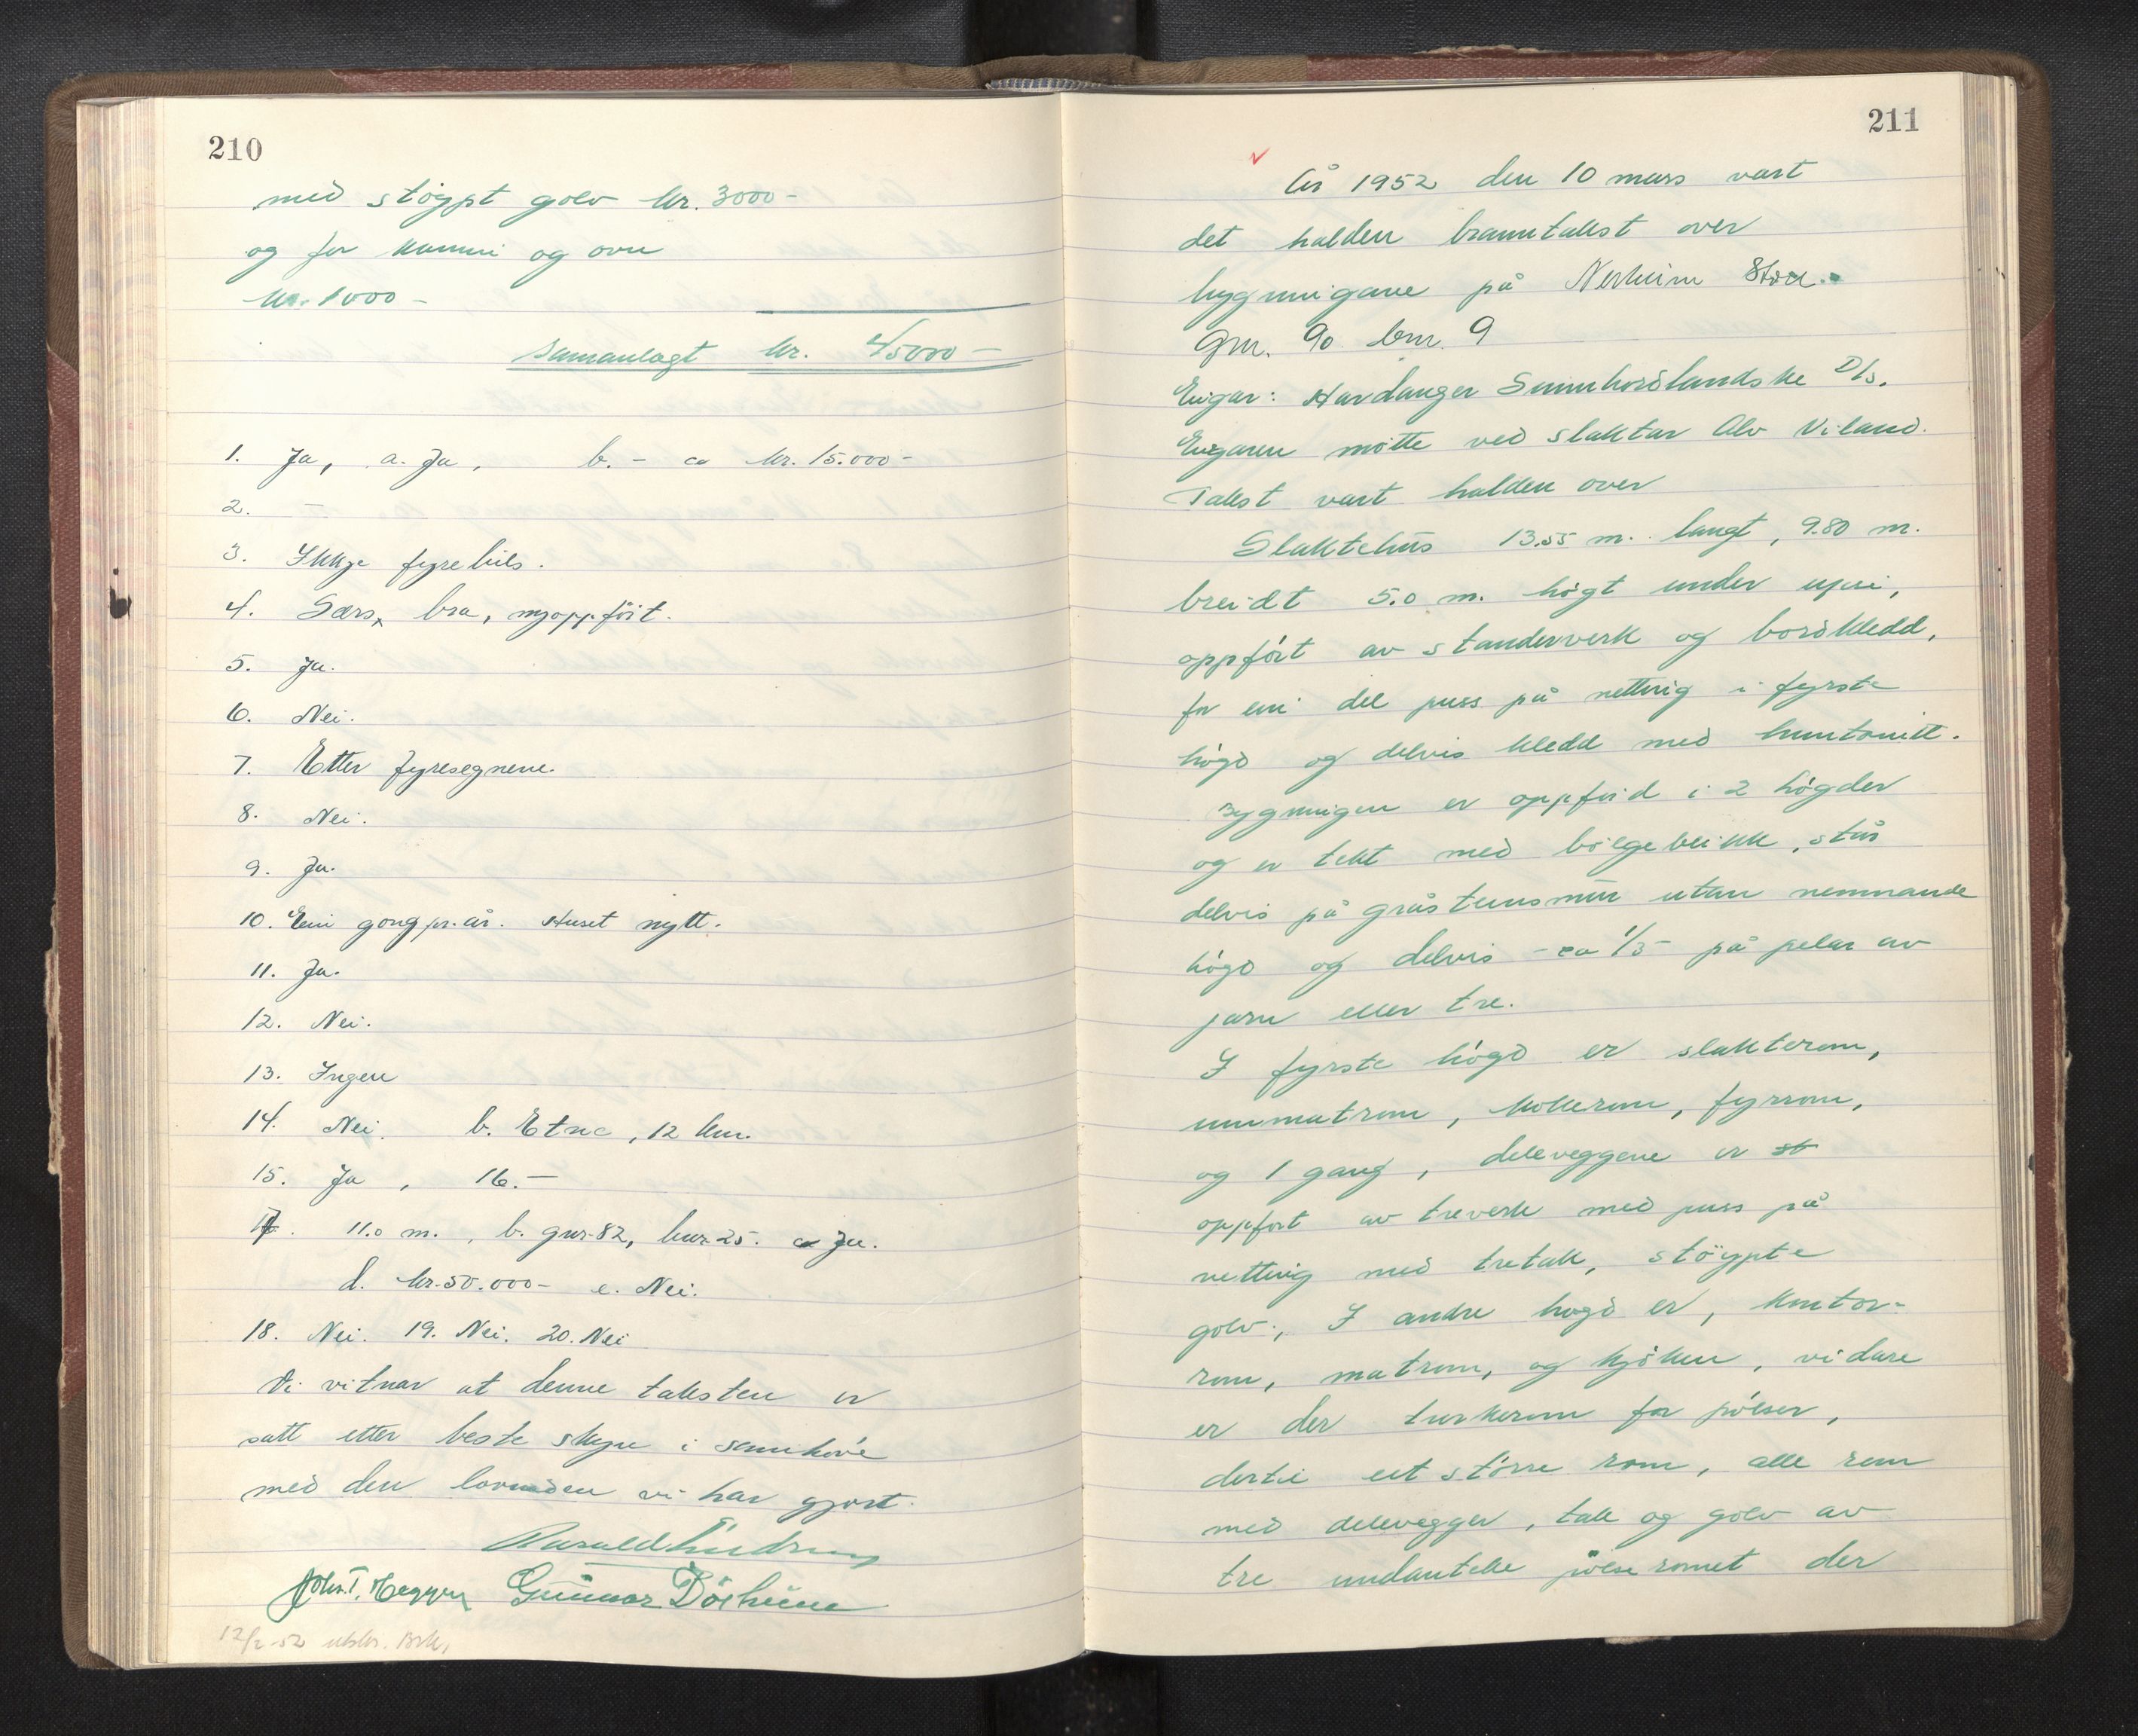 210
med støypt golv kr. 3000-
og for kamin og ovn
kr. 1000-
Samanlagt kr. 45000-
1. Ja, a. Ja, b. - ca kr. 15.000-
2. -
3. Ikkje fyrebils.
4. Særs, bra, nyoppført.
5. Ja.
6. Nei.
7. Etter fyresegnene.
8. Nei.
9. Ja.
10. Ein gong pr. år. Huset nytt.
11. Ja.
12. Nei.
13. Ingen
14. Nei. b. Etne, 12 km.
15. Ja, 16. -
17. 11.0 m., b. gnr. 82, bnr. 25. c Ja.
d. kr. 50.000- e. Nei.
18. Nei. 19. Nei. 20. Nei
Vi vitnar at denne taksten er
satt etter beste skyn i samhøve
med den lovnaden vi har gjort.
Harald
John T. Gunnar
12/2-52 utskr.
211
År 1952 den 10 mars vart
det halden branntakst over
bygningane på Nerheim
Gnr. 90 bnr. 9
Eigar: Hardanger Sunnhordlandske D/s.
Eigaren møtte ved slaktar Alv Viland.
Takst vart halden over
Slaktehus 13.55 m. langt, 9.80 m.
breidt 5.0 m. høgt under upsi,
oppført av standerverk og bordkledd,
for ein del puss på netting i fyrste
høgd og delvis kledd med huntonitt.
Bygningen er oppførd i 2 høgder
og er tekt med bølgeblikk, står
delvis på gråsteinsmur utan nemnande
høgd og delvis - ca 1/3 - på pelar av
jarn eller tre.
I fyrste høgd er slakterom,
innmatrom, kokerom, fyrrom,
og 1 gang, deleveggene er st
oppført av treverk med puss på
netting med tretak, støypte
golv., I andre høgd er, kontor-
rom, matrom, og kjøken, vidare
er der turkerom for pølser,
dertil eit større rom, alle rom
med delevegger, tak og golv av
tre undantake pølseromet der